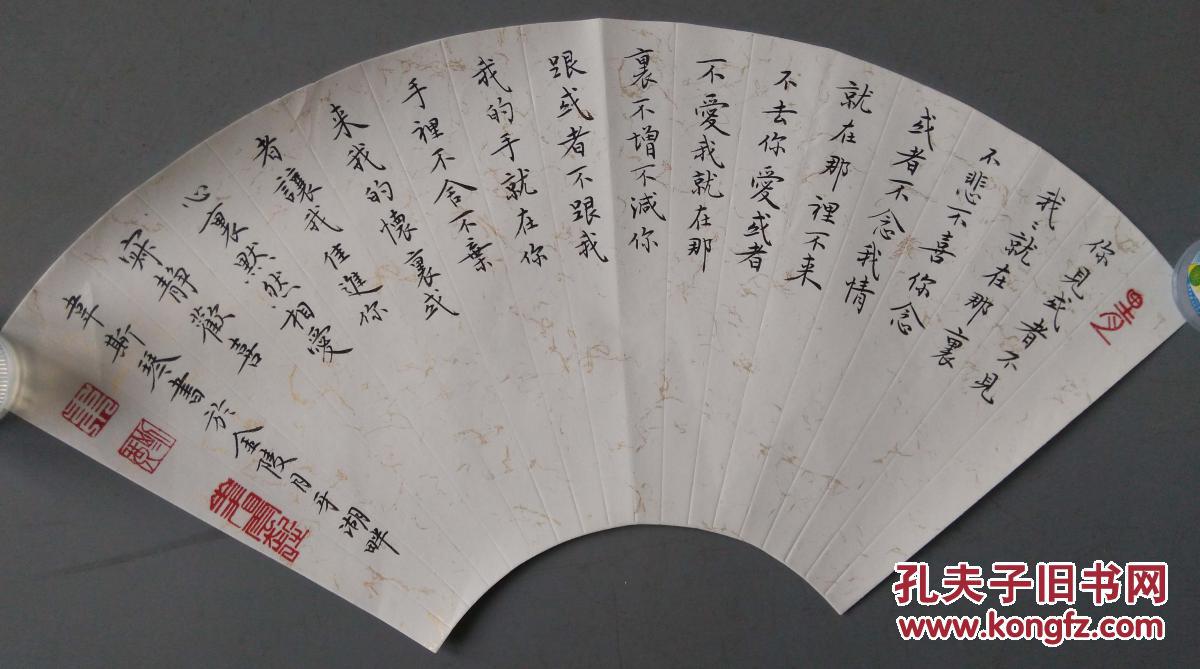 你見或者不見
我〻就在那裏
不悲不喜你念
或者不念我情
就在那裡不来
不去你愛或者
不愛我就在那
裏不增不減你
跟或者不跟我
我的手就在你
手裡不舍不棄
来我的懷裏或
者讓我佳進你
心裏默然相愛
寂静歡喜
韋斯琴書於金陵月牙湖畔
孔夫子旧书网
www.kongfz.com